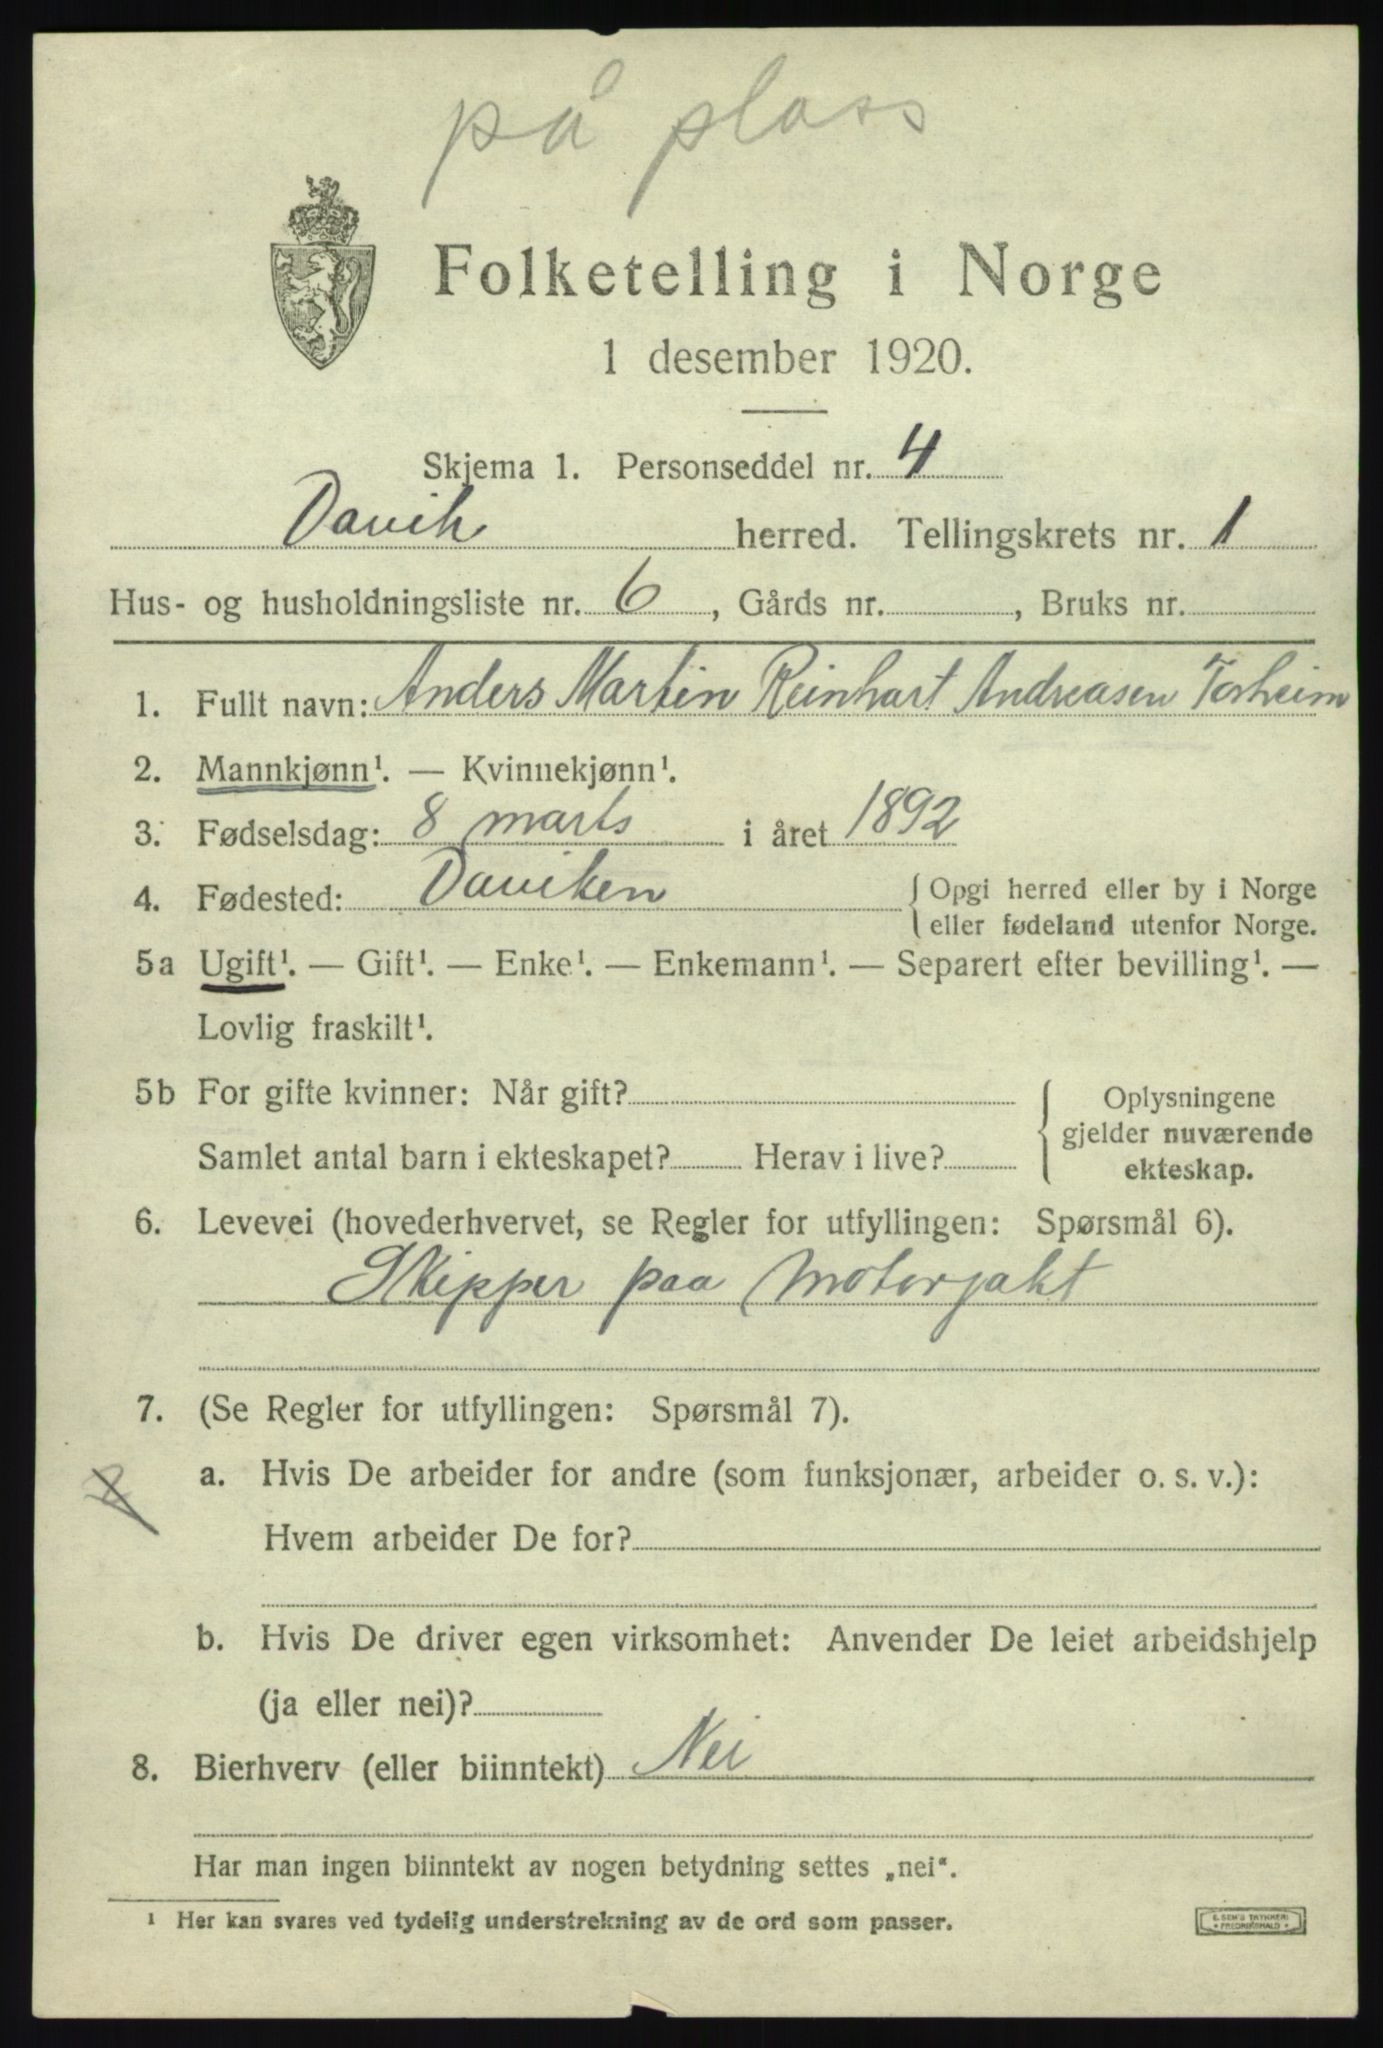 på plass
Folketelling i Norge
1 desember 1920.
Skjema 1. Personseddel nr. 4
Davik herred. Tellingskrets nr. 1
Hus- og husholdningsliste nr. 6, Gårds nr. , Bruks nr.
1. Fullt navn: Anders Martin Reinhart Andreasen Torheim
2. Mannkjønn¹. — Kvinnekjønn¹.
3. Fødselsdag: 8 marts i året 1892
4. Fødested: Daviken { Opgi herred eller by i Norge
eller fødeland utenfor Norge.
5a Ugift¹. — Gift¹. — Enke¹. — Enkemann¹. — Separert efter bevilling¹. —
Lovlig fraskilt¹.
5b For gifte kvinner: Når gift?
Samlet antal barn i ekteskapet? Herav i live?
{ Oplysningene
gjelder nuværende
ekteskap.
6. Levevei (hovederhvervet, se Regler for utfyllingen: Spørsmål 6).
Skipper paa Motorjakt
7. (Se Regler for utfyllingen: Spørsmål 7).
a. Hvis De arbeider for andre (som funksjonær, arbeider o. s. v.):
Hvem arbeider De for?
b. Hvis De driver egen virksomhet: Anvender De leiet arbeidshjelp
(ja eller nei)?
8. Bierhverv (eller biinntekt) Nei
Har man ingen biinntekt av nogen betydning settes „nei".
¹ Her kan svares ved tydelig understrekning av de ord som passer.
E. SEM'S TRYKKERI
FREDRIKSHALD